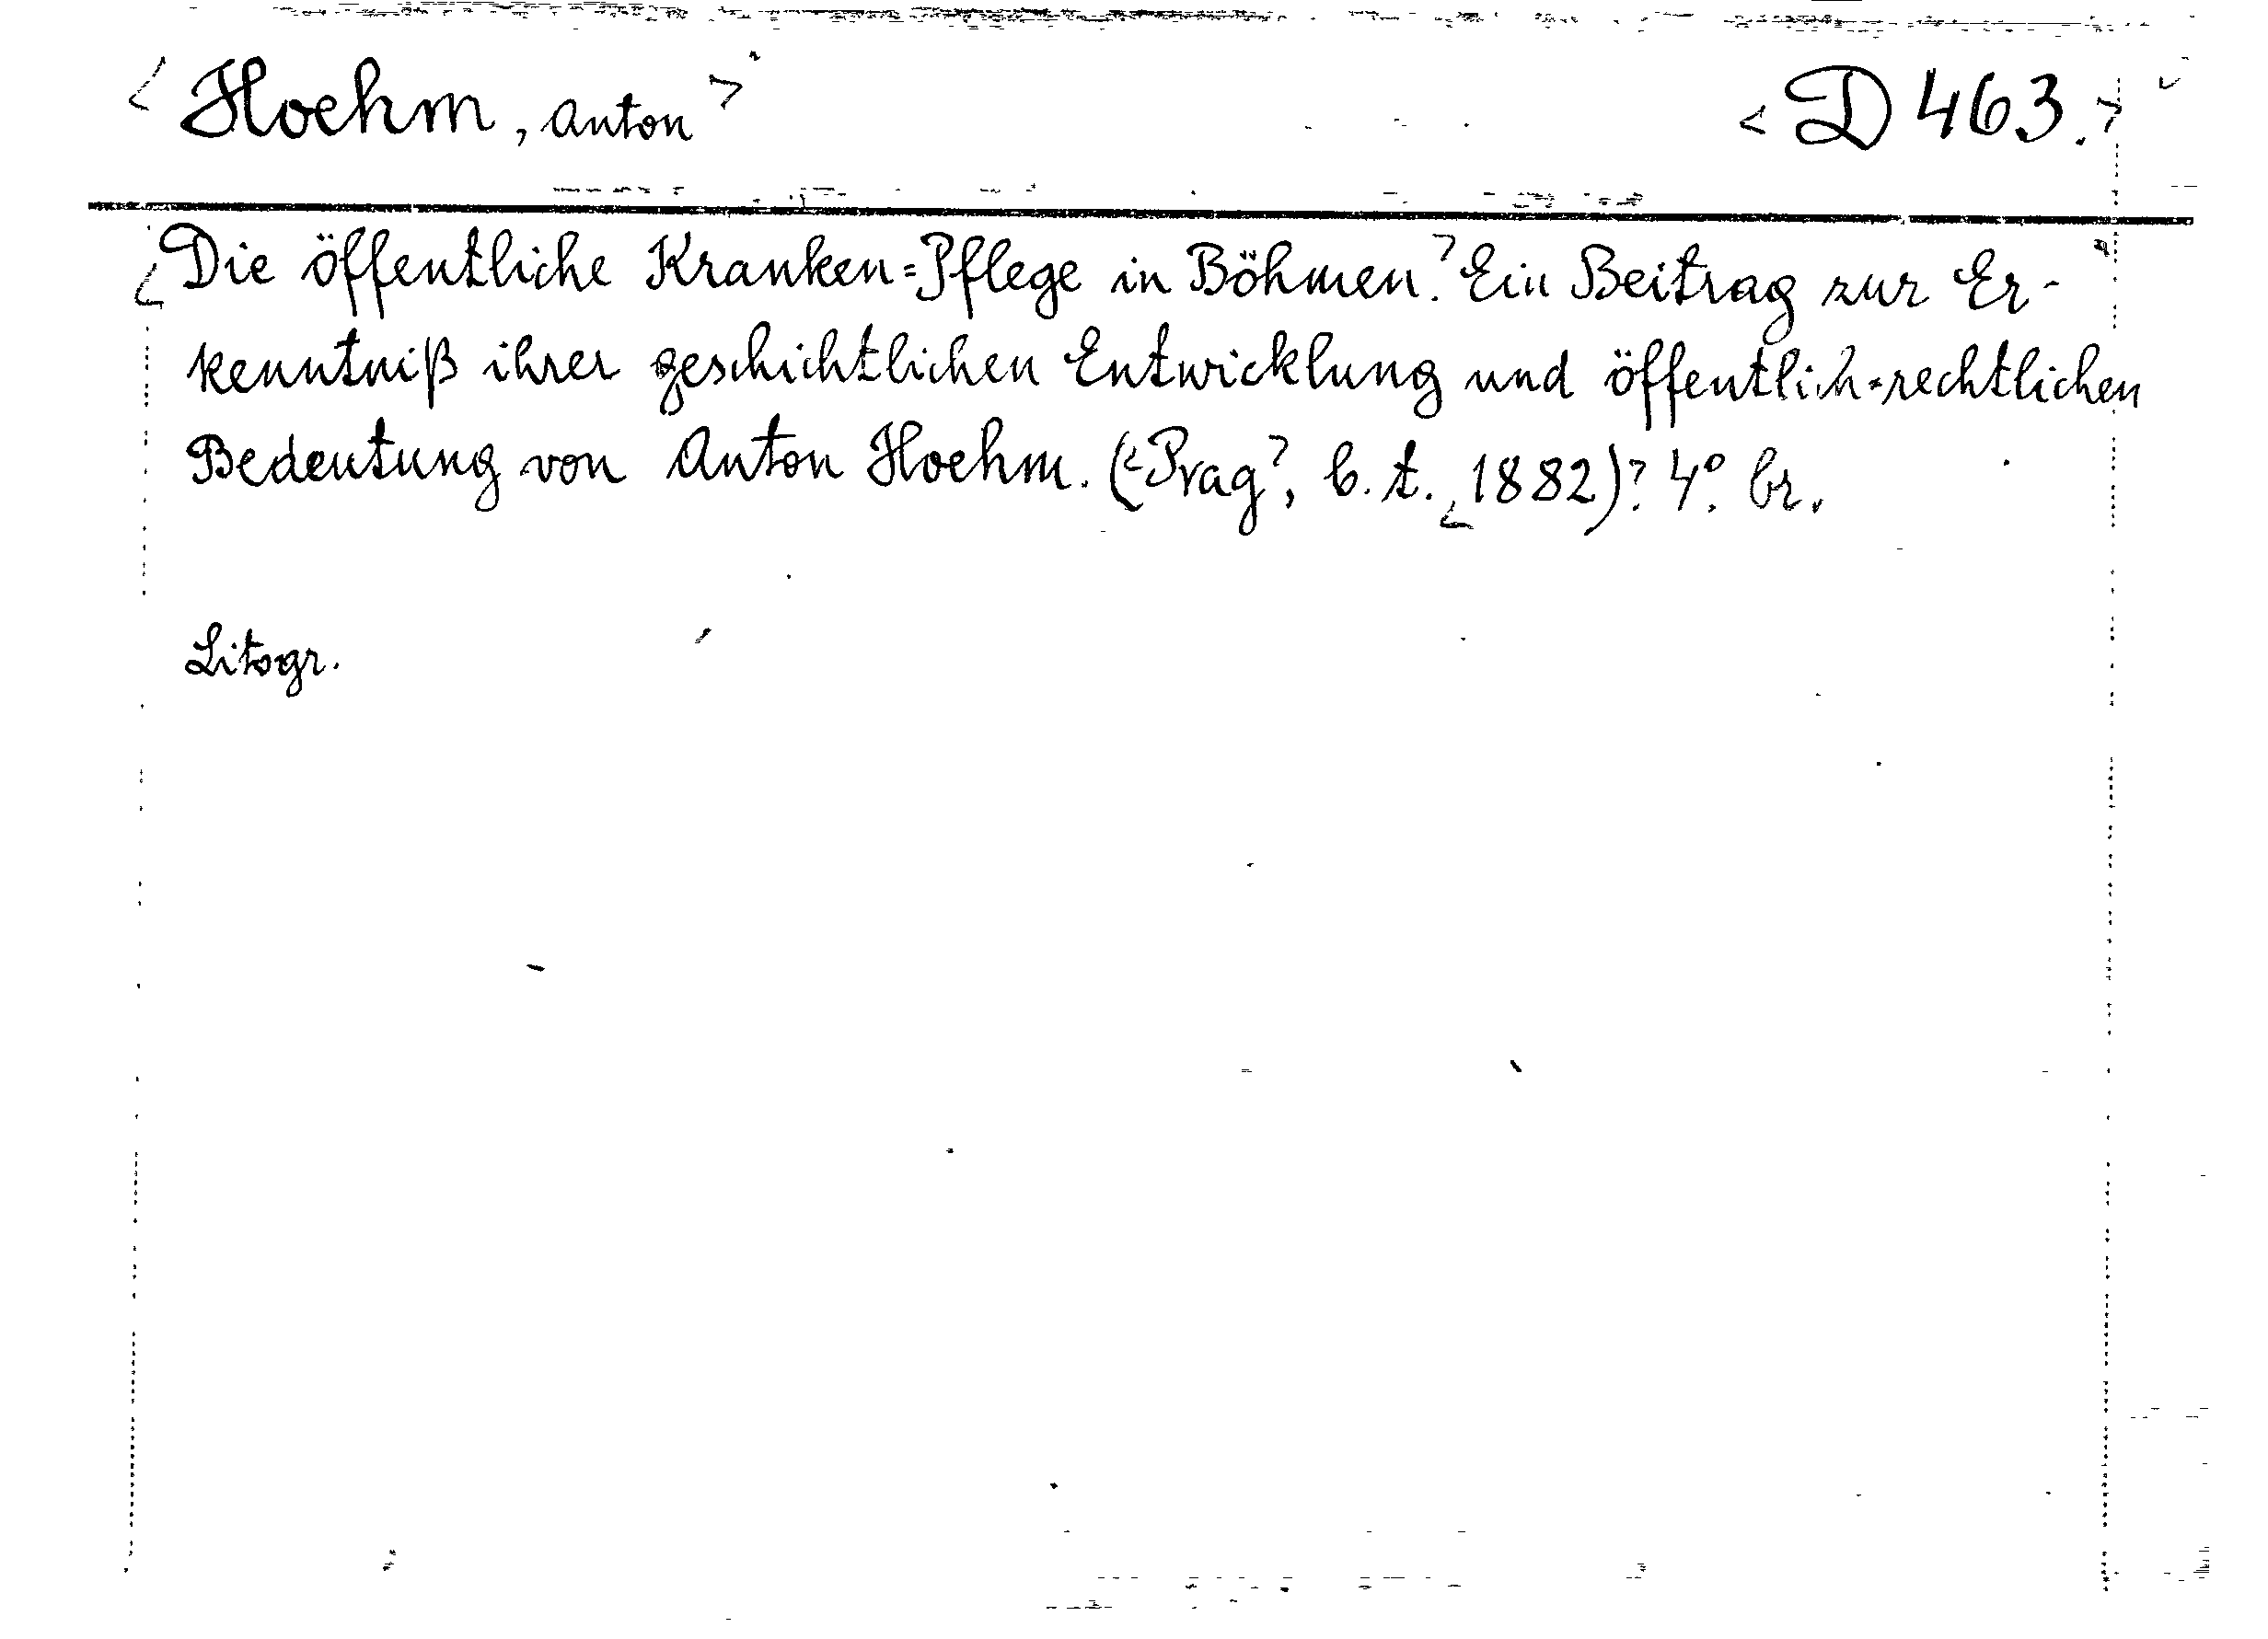 <Hoehm, Anton>
<D 463.>
<Die öffentliche Kranken=Pflege in Böhmen.> Ein Beitrag zur Er-
kenntniß ihrer geschichtlichen Entwicklung und öffentlich=rechtlichen
Bedeutung von Anton Hoehm. (<Prag>, b. t. <1882)> 4° br.
Litogr.